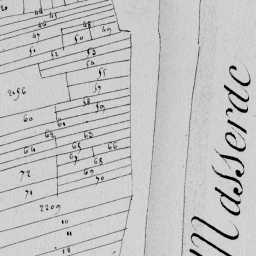 46
45
47
48
49
50
51
52
53
54
55
57
2056
58
59
60
61
62
63
64
65
66
67
68
72
69
70
71
2209
10
11
12
Masserac